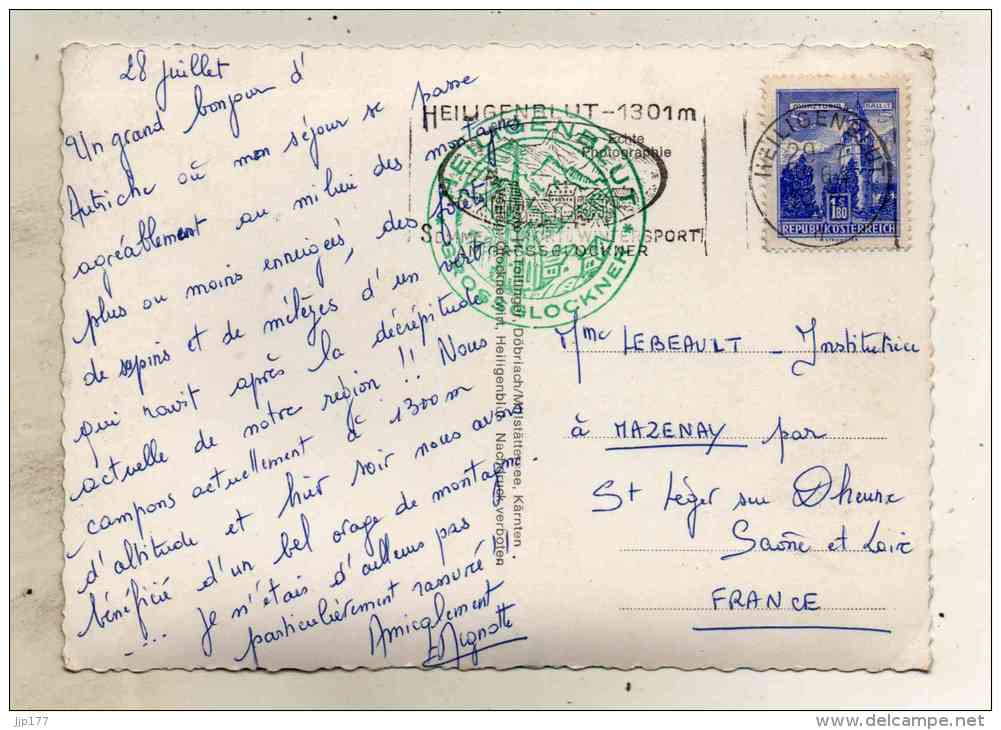 28 juillet
Un grand bonjour d'
Autriche où mon séjour se passe
agréablement au milieu des montagnes
plus ou moins enneigées, des forêts
de sapins et de mélèzes d'un vert
qui ravit après la décrépitude
actuelle de notre région !! Nous
campons actuellement à 1300m
d'altitude et hier soir nous avons
bénéficié d'un bel orage de montagne.
.... je n'étais d'ailleurs pas
particulièrement rassuré !!
Amicalement
Mignotte
HEILIGENBLUT-1301m
Echte
Photographie
SPORT
GROSSGLOCKNER
HEILIGENBLUT
* GROSSGLOCKNER *
Döbriach/Millstättersee, Kärnten
Heiligenblut. Nachdruck verboten
HEILIGENBLUT
20
1.80
REPUBLIK ÖSTERREICH
Mme LEBEAULT - Institutrice
à MAZENAY par
St Léger sur Dheune
Saône et Loire
FRANCE
jjp177
delcampe.net